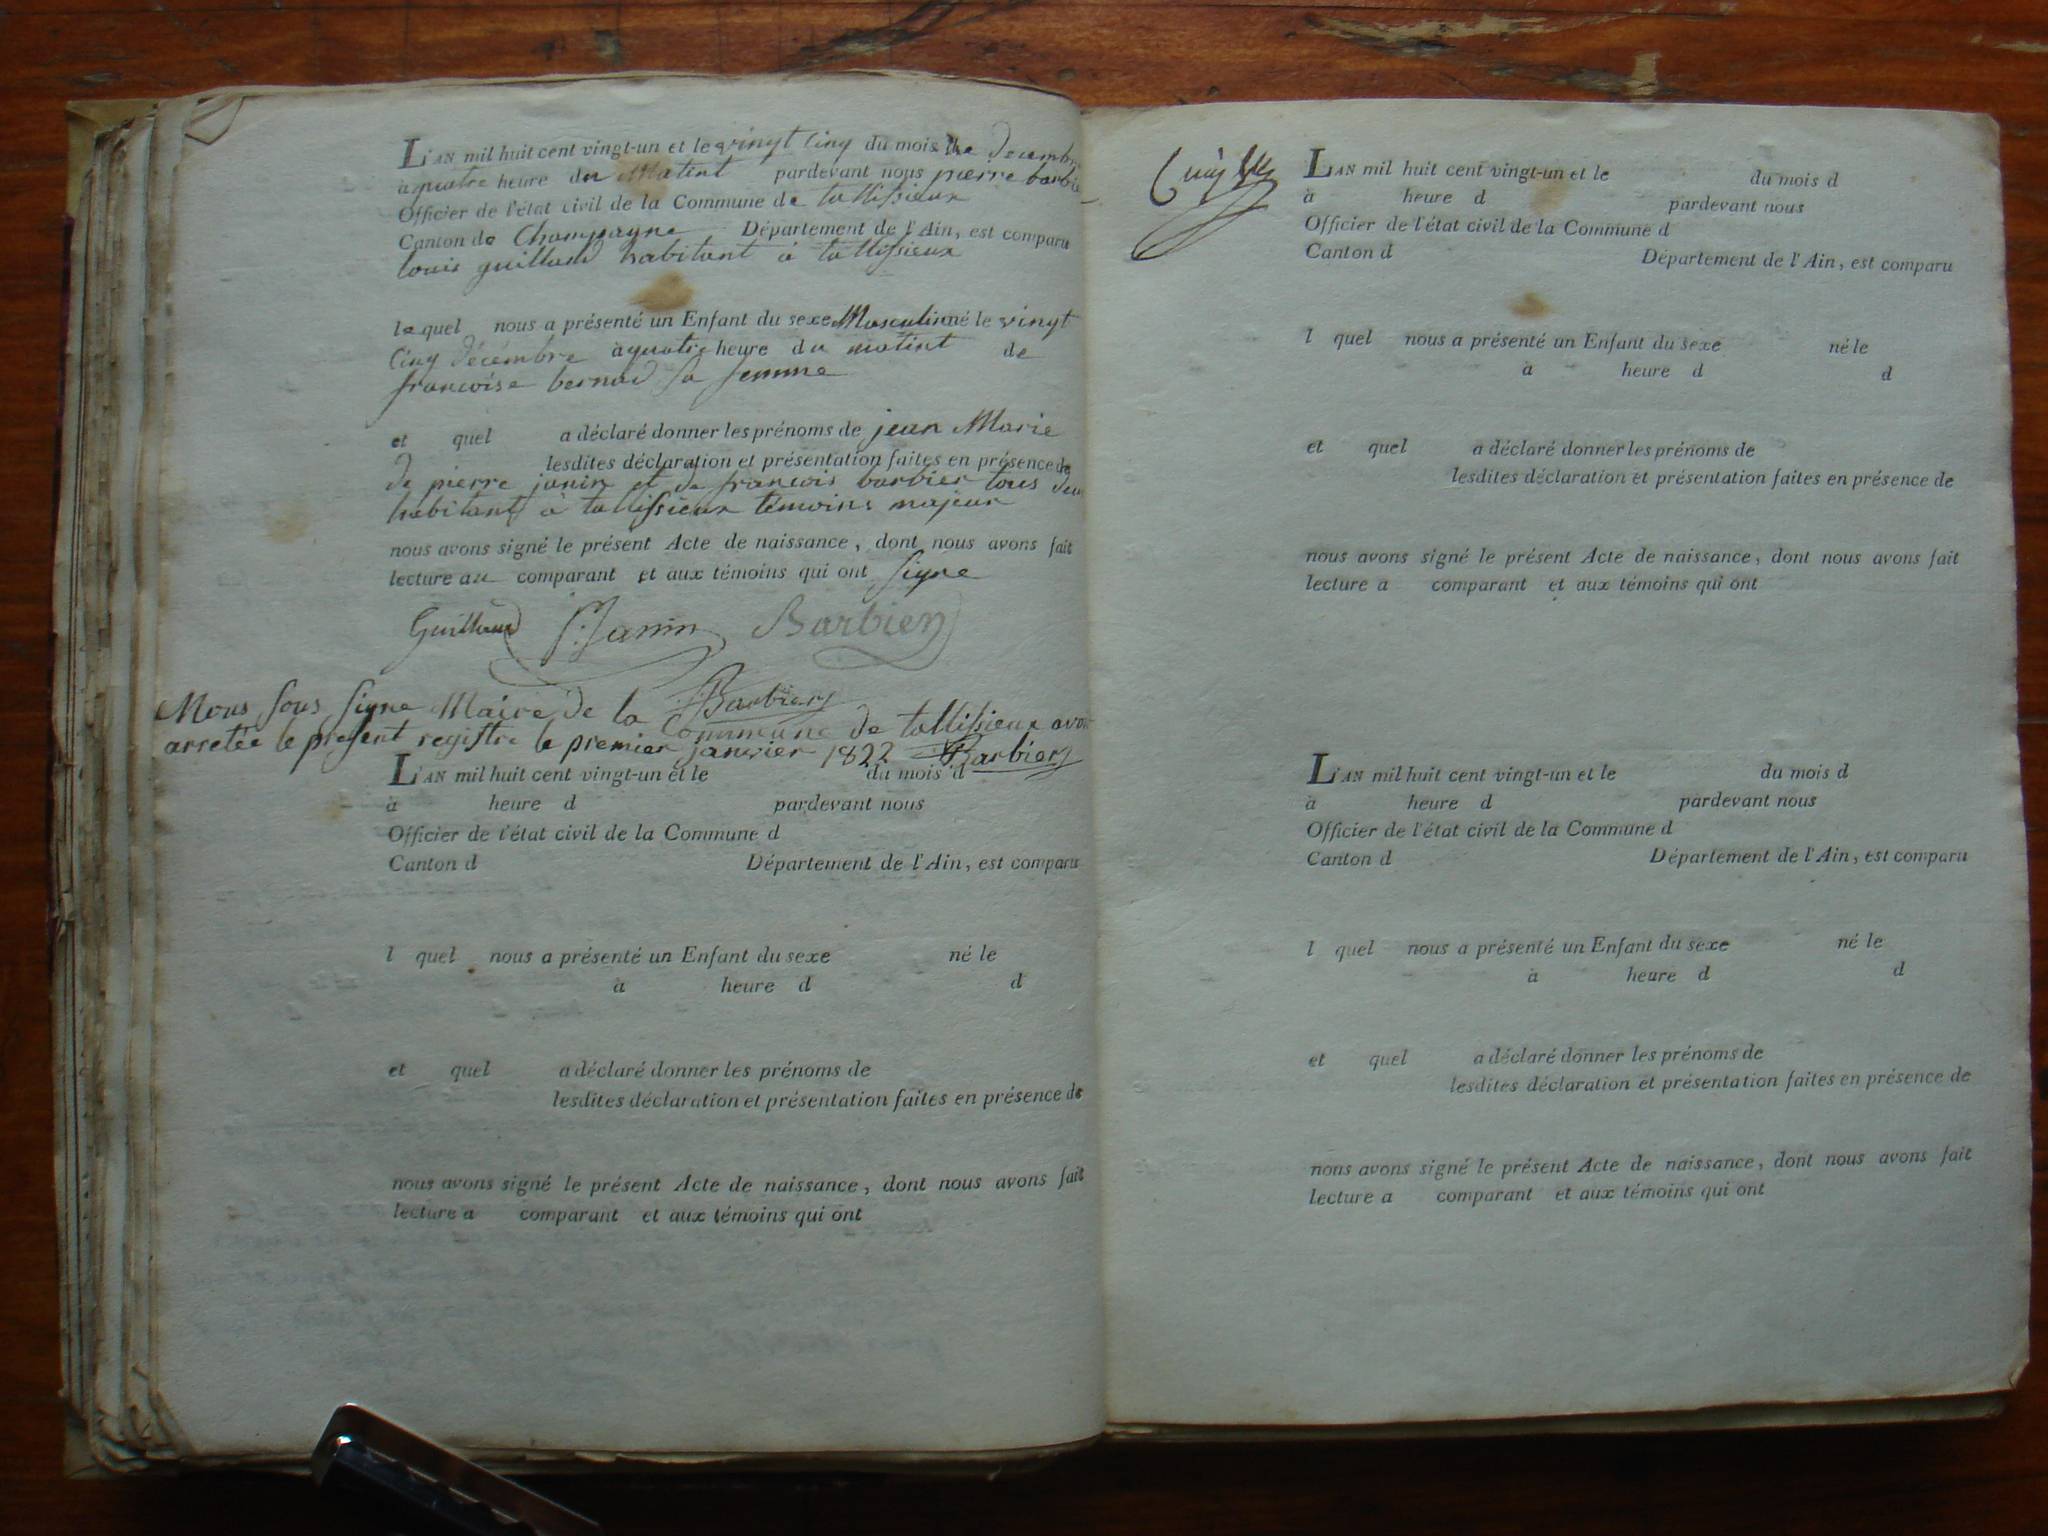 L'AN mil huit cent vingt-un et le vingt cinq du mois de decembre
à quatre heure du Matint pardevant nous pierre barbie
Officier de l'état civil de la Commune de tallissieux
Canton de Champagne Département de l'Ain, est comparu
louis guilland habitant à tallissieux
lequel nous a présenté un Enfant du sexe Masculin né le vingt
cinq décémbre à quatre heure du matint de
francoise bernad sa femme
et quel a déclaré donner les prénoms de jean Marie
lesdites déclaration et présentation faites en présence de
de pierre janin et de francois barbier tous deux
habitant à tallissieux temoins majeur
nous avons signé le présent Acte de naissance, dont nous avons fait
lecture au comparant et aux témoins qui ont signe
Guilland P. Janin Barbier
Barbier
Nous sous signe Maire de la Commune de tallissieux avons
arretée le present registre le premier janvier 1822 Barbier
L'AN mil huit cent vingt-un et le du mois d
à heure d pardevant nous
Officier de l'état civil de la Commune d
Canton d Département de l'Ain, est comparu
l quel nous a présenté un Enfant du sexe né le
à heure d d
et quel a déclaré donner les prénoms de
lesdites déclaration et présentation faites en présence de
nous avons signé le présent Acte de naissance, dont nous avons fait
lecture a comparant et aux témoins qui ont
L'AN mil huit cent vingt-un et le du mois d
à heure d pardevant nous
Officier de l'état civil de la Commune d
Canton d Département de l'Ain, est comparu
l quel nous a présenté un Enfant du sexe né le
à heure d d
et quel a déclaré donner les prénoms de
lesdites déclaration et présentation faites en présence de
nous avons signé le présent Acte de naissance, dont nous avons fait
lecture a comparant et aux témoins qui ont
L'AN mil huit cent vingt-un et le du mois d
à heure d pardevant nous
Officier de l'état civil de la Commune d
Canton d Département de l'Ain, est comparu
l quel nous a présenté un Enfant du sexe né le
à heure d d
et quel a déclaré donner les prénoms de
lesdites déclaration et présentation faites en présence de
nous avons signé le présent Acte de naissance, dont nous avons fait
lecture a comparant et aux témoins qui ont